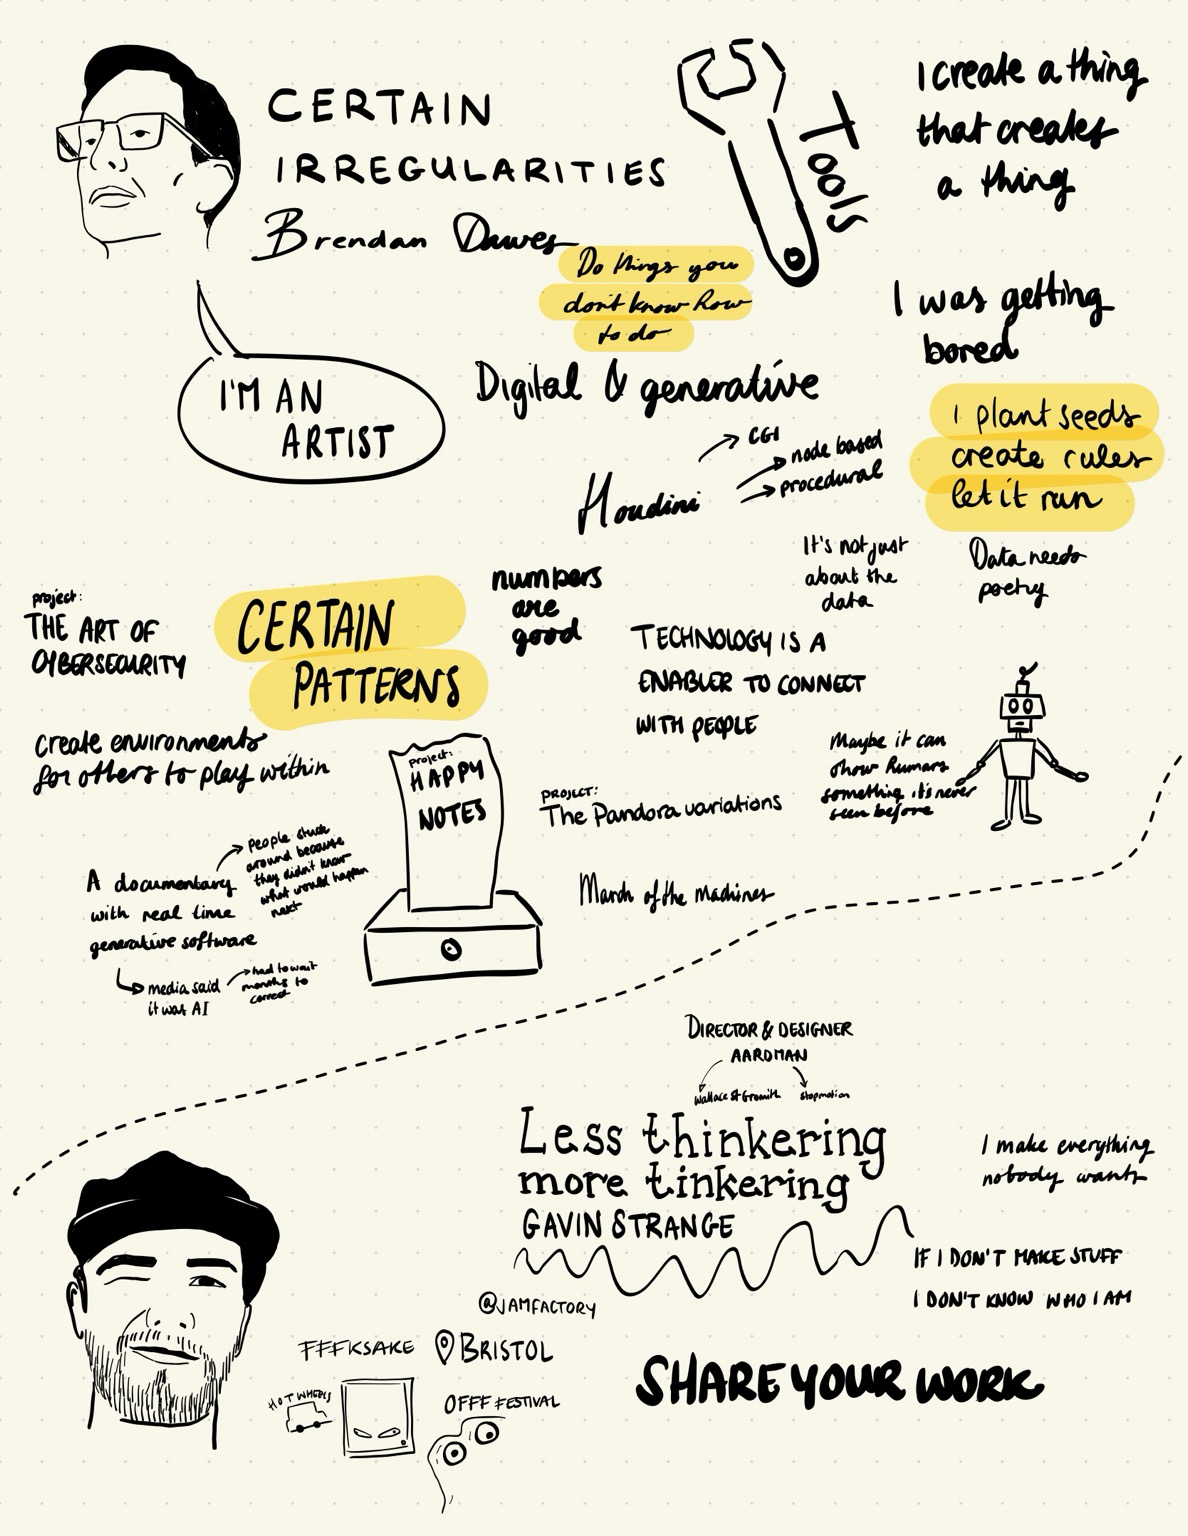 CERTAIN
IRREGULARITIES
Brendan Dawes
Tools
I create a thing
that creates
a thing
Do things you
don't know how
to do
I was getting
bored
I'M AN
ARTIST
Digital & generative
I plant seeds
create rules
let it run
Houdini
CGI
node based
procedural
It's not just
about the
data
Data needs
poetry
project:
THE ART OF
CYBERSECURITY
CERTAIN
PATTERNS
numbers
are
good
TECHNOLOGY IS A
ENABLER TO CONNECT
WITH PEOPLE
create environments
for others to play within
project:
HAPPY
NOTES
PROJECT:
The Pandora variations
Maybe it can
show humans
something it's never
seen before
A documentary
with real time
generative software
people stuck
around because
they didn't know
what would happen
next
media said
it was AI
had to wait
months to
correct
March of the Machines
DIRECTOR & DESIGNER
AARDMAN
Wallace & Gromith
stopmotion
Less thinkering
more tinkering
GAVIN STRANGE
I make everything
nobody wants
IF I DON'T MAKE STUFF
I DON'T KNOW WHO I AM
@JAMFACTORY
FFFKSAKE
BRISTOL
HOT WHEELS
OFFF FESTIVAL
SHARE YOUR WORK